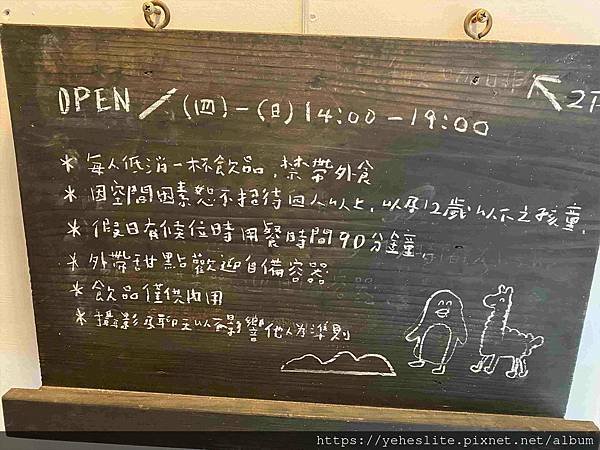 2F
OPEN / (四) - (日) 14:00 - 19:00
* 每人低消一杯飲品，禁帶外食
* 因空間因素恕不招待四人以上，以及12歲以下之孩童，
* 假日有候位時用餐時間90分鐘
* 外帶甜點歡迎自備容器
* 飲品僅供內用
* 攝影及聊天以不影響他人為準則
https://yeheslite.pixnet.net/album